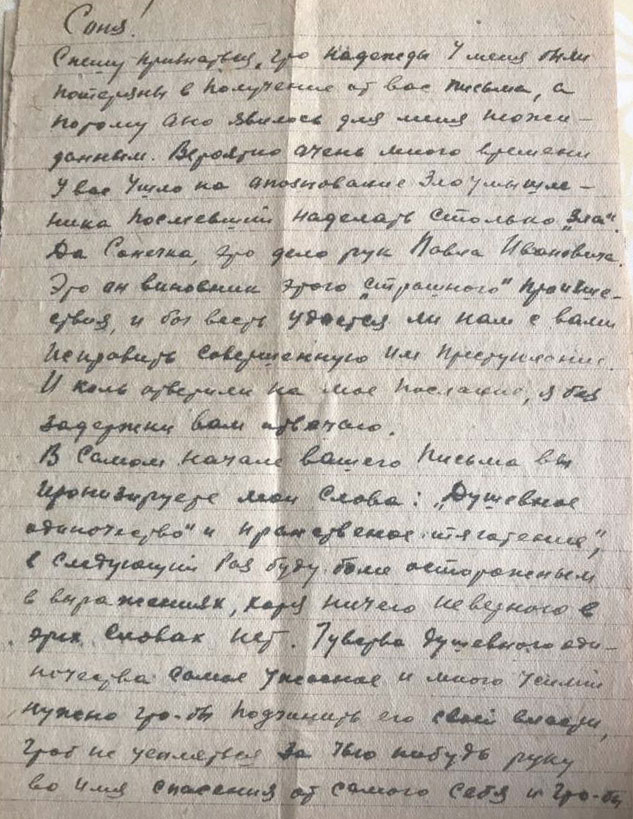 Соня!
Спешу признаться, что надежды у меня были
потеряны в получение от вас письма, а
потому ано явилось для меня неожи-
данным. Вероятно очень много времени
у вас ушло на апознование злоумышле-
ника посмевший наделать столько „зла“.
Да Сонечка, это дело рук Павла Ивановича.
Это он виновник этого „страшного“ происше-
ствия, и бог весть удастся ли нам с вами
исправить совершенную им преступление.
И коль ответили на мое послание, я без
задержки вам отвечаю.
В самом начале вашего письма вы
иронизируете мои слова: „Душевное
одиночество“ и нравственое тяготение“,
в следующий раз буду более осторожным
в выражениях, хотя ничего неверного в
этих словах нет. Чувства душевного оди-
ночества самое ужасное и много усилий
нужно что-бы подчинить его своей власти,
чтоб не уцепляться за чью нибудь руку
во имя спасения от самого себя и что-бы